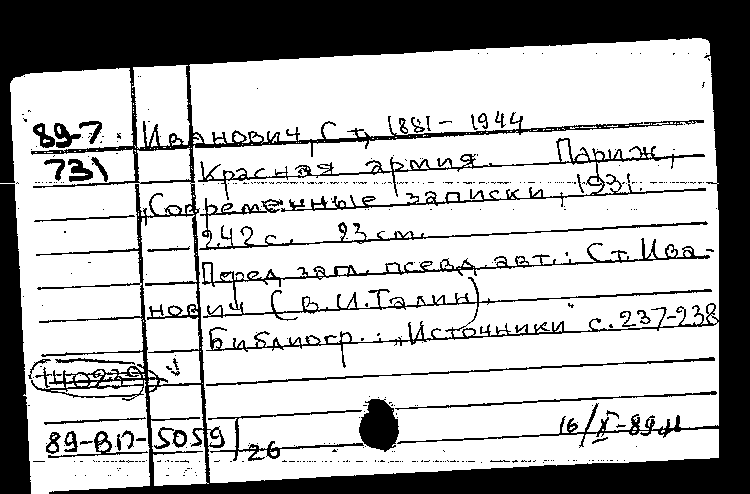 89-7 Иванович, Ст., 1881 – 1944
731 Красная армия. Париж,
„Современные записки", 1931.
242 с. 23 см.
Перед загл. псевд. авт.: Ст. Ива-
нович (В. И. Талин).
Библиогр.: „Источники" с. 237-238
140239
89-ВП-5059/26
16/X-89